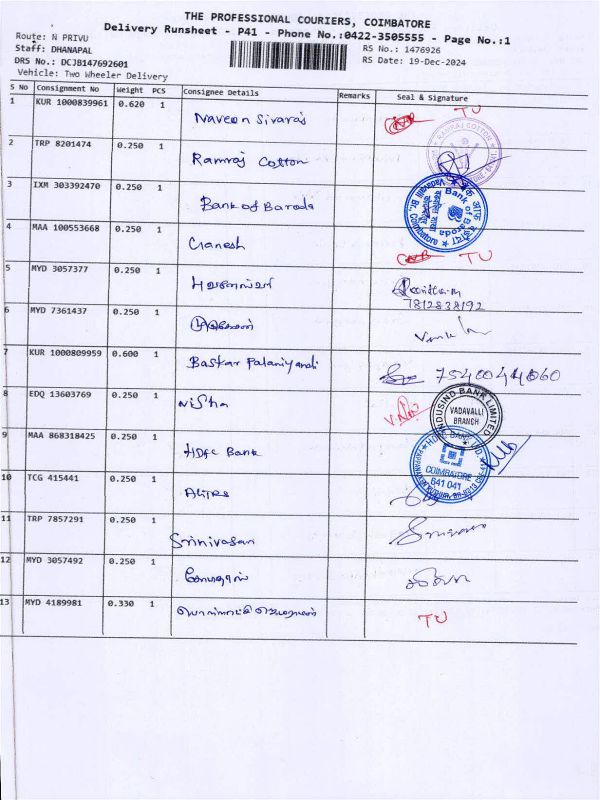 THE PROFESSIONAL COURIERS, COIMBATORE
Delivery Runsheet - P41 - Phone No.:0422-3505555 - Page No.:1
Route: N PRIVU
RS No.: 1476926
Staff: DHANAPAL
RS Date: 19-Dec-2024
DRS No.: DCJB147692601
Vehicle: Two Wheeler Delivery
S No Consignment No Weight PCS Consignee Details Remarks Seal & Signature
1 KUR 1000839961 0.620 1 Naveen Sivaraj TU
2 TRP 8201474 0.250 1 Ramraj Cotton RAMRAJ COTTON
3 IXM 303392470 0.250 1 Bank of Baroda Bank of Baroda Vadavalli Br., Coimbatore
4 MAA 100553668 0.250 1 Ganesh TU
5 MYD 3057377 0.250 1
7812838192
6 MYD 7361437 0.250 1
7 KUR 1000809959 0.600 1 Baskar Palaniyandi
8 EDQ 13603769 0.250 1 Nisha INDUSIND BANK LIMITED VADAVALLI BRANCH
9 MAA 868318425 0.250 1 HDFC Bank COIMBATORE 641 041
10 TCG 415441 0.250 1
11 TRP 7857291 0.250 1 Srinivasan
12 MYD 3057492 0.250 1
13 MYD 4189981 0.330 1 TU